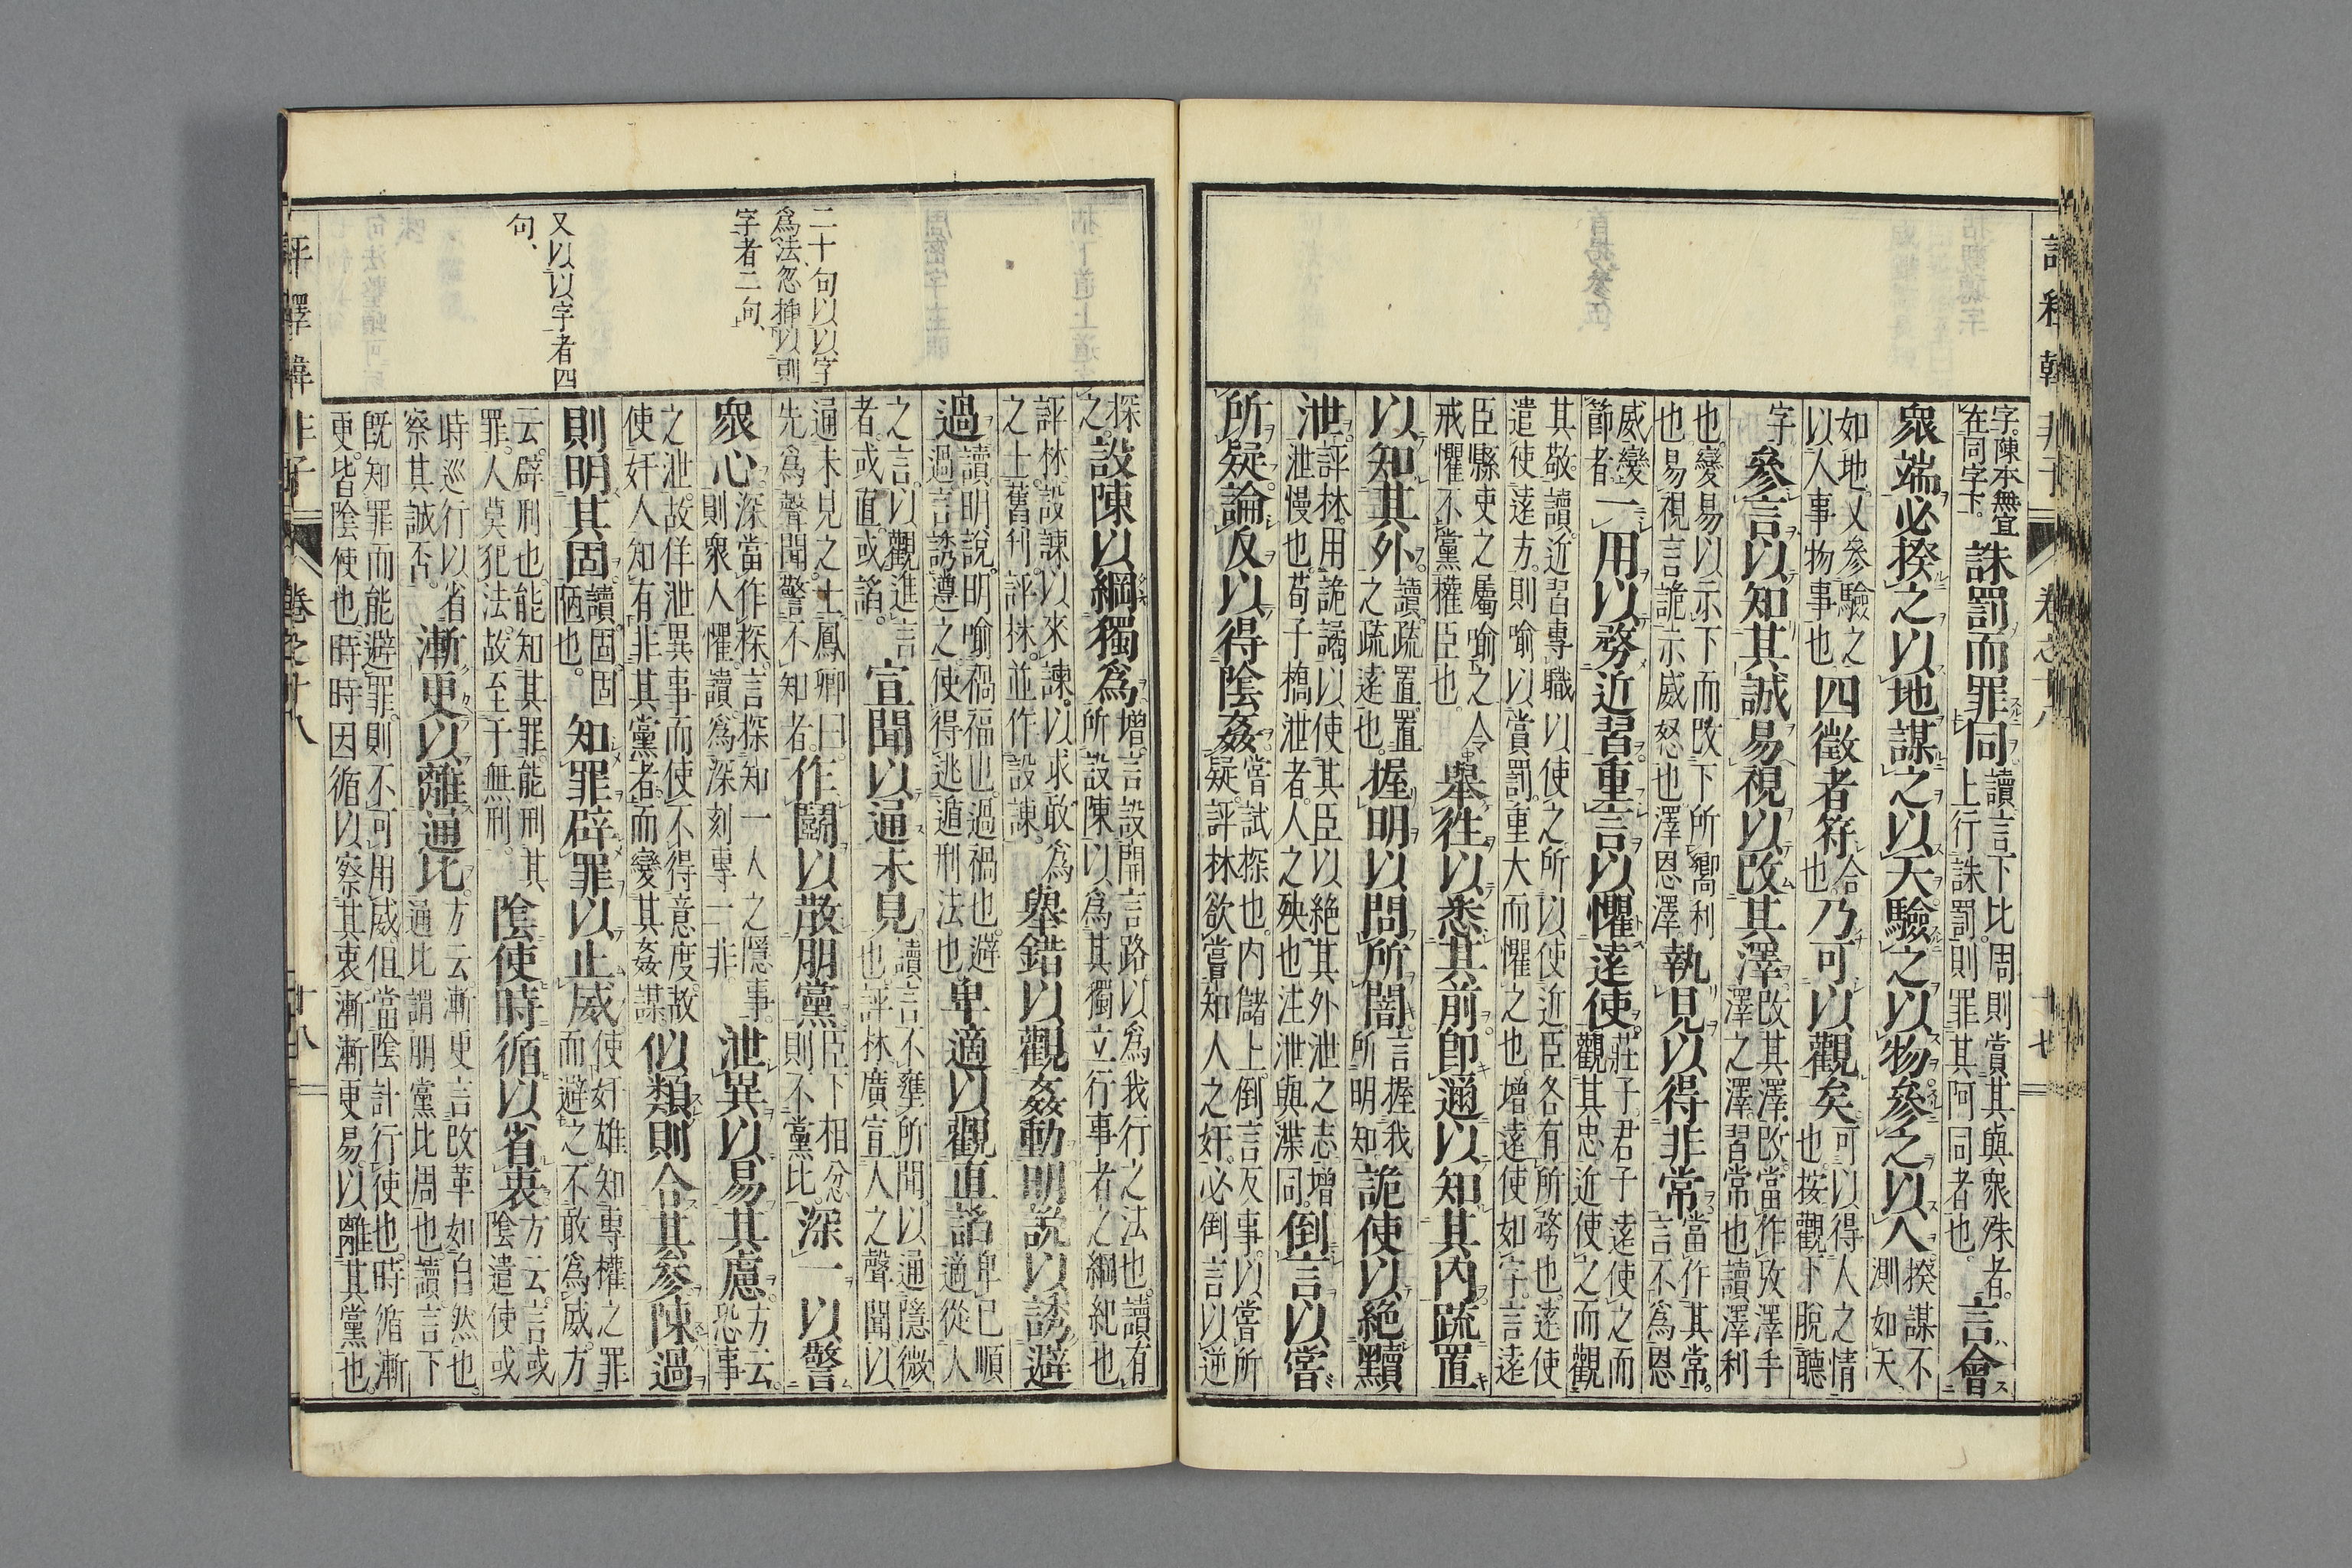 評釋韓非子 卷之十八 十七
字。陳本無宜在同字下。誅罰而罪同讀言下比周則賞其與衆殊者。上行誅罰則罪其阿同者也。言會
衆端必揆之以地謀之以天驗之以物參之以人揆謀不測如天
如地又參驗之以人事物事也四徵者符合也乃可以觀矣可以得人之情也按觀下脫聽
字參言以知其誠易視以改其澤改其澤改當作攷澤手澤之澤習常也讀澤利
也變易以示下而改下所嚮利也易視言詭示威怒也澤恩澤執見以得非常當作其常。言不爲恩
威變節者一用以務近習重言以懼遠使莊子君子遠使之而觀其忠近使之而觀
其敬讀近習專職以使之所以使近臣各有所務也遠使遣使遠方則喻以賞罰重大而懼之也增遠使如字言遠
臣縣吏之屬喻之令戒懼不黨權臣也舉徃以悉其前卽邇以知其内疏置
以知其外讀疏置置之疏遠也握明以問所闇言握我所明知詭使以絶黷
泄評林用詭譎以使其臣以絶其外泄之志增泄慢也荀子橋泄者人之殃也注泄與渫同倒言以嘗
所疑論反以得陰姦嘗試探也内儲上倒言反事以嘗所疑評林欲嘗知人之奸必倒言以逆
二十句以以字
爲法忽揷以則
字者二句、
又以以字者四
句、
探之設陳以綱獨爲增言設開言路以爲我行之法也讀有所設陳以爲其獨立行事者之綱紀也
評林設諫以來諫以求敢爲之上舊刊評林並作設諫舉錯以觀姦動明說以誘避
過讀明說明喻禍福也過禍也避過言誘遵之使得逃遁刑法也卑適以觀直諂卑已順適從人
之言以觀進言者或直或諂宣聞以通未見讀言不壅所聞以通隱微也評林廣宣人之聲聞以
通未見之士鳳卿曰先爲聲聞警不知者作鬭以散朋黨臣下相忿則不黨比深一以警
衆心深當作探言探知一人之隱事則衆人懼讀爲深刻專一非泄異以易其慮方云恐事
之泄故佯泄異事而使不得意度故使奸人知有非其黨者而變其姦謀似類則合其參陳過
則明其固讀固固陋也知罪辟罪以止威使奸雄知專權之罪而避之不敢爲威方
云辟刑也能知其罪能刑其罪人莫犯法故至于無刑陰使時循以省衷方云言或陰遣使或
時巡行以省察其誠否漸更以離通比方云漸更言改革如自然也通比謂朋黨比周也讀言下
既知罪而能避罪則不可用威但當陰計行使也時循漸更皆陰使也時時因循以察其衷漸漸更易以離其黨也
評釋韓非子 卷之十八 十八